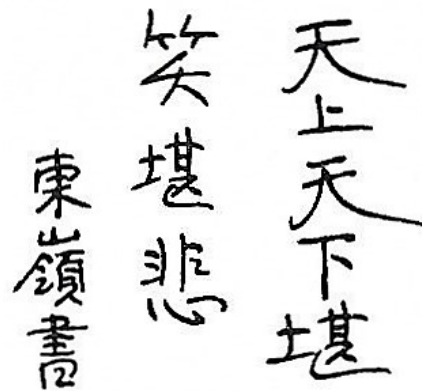 天上天下堪
笑堪悲
東嶺書